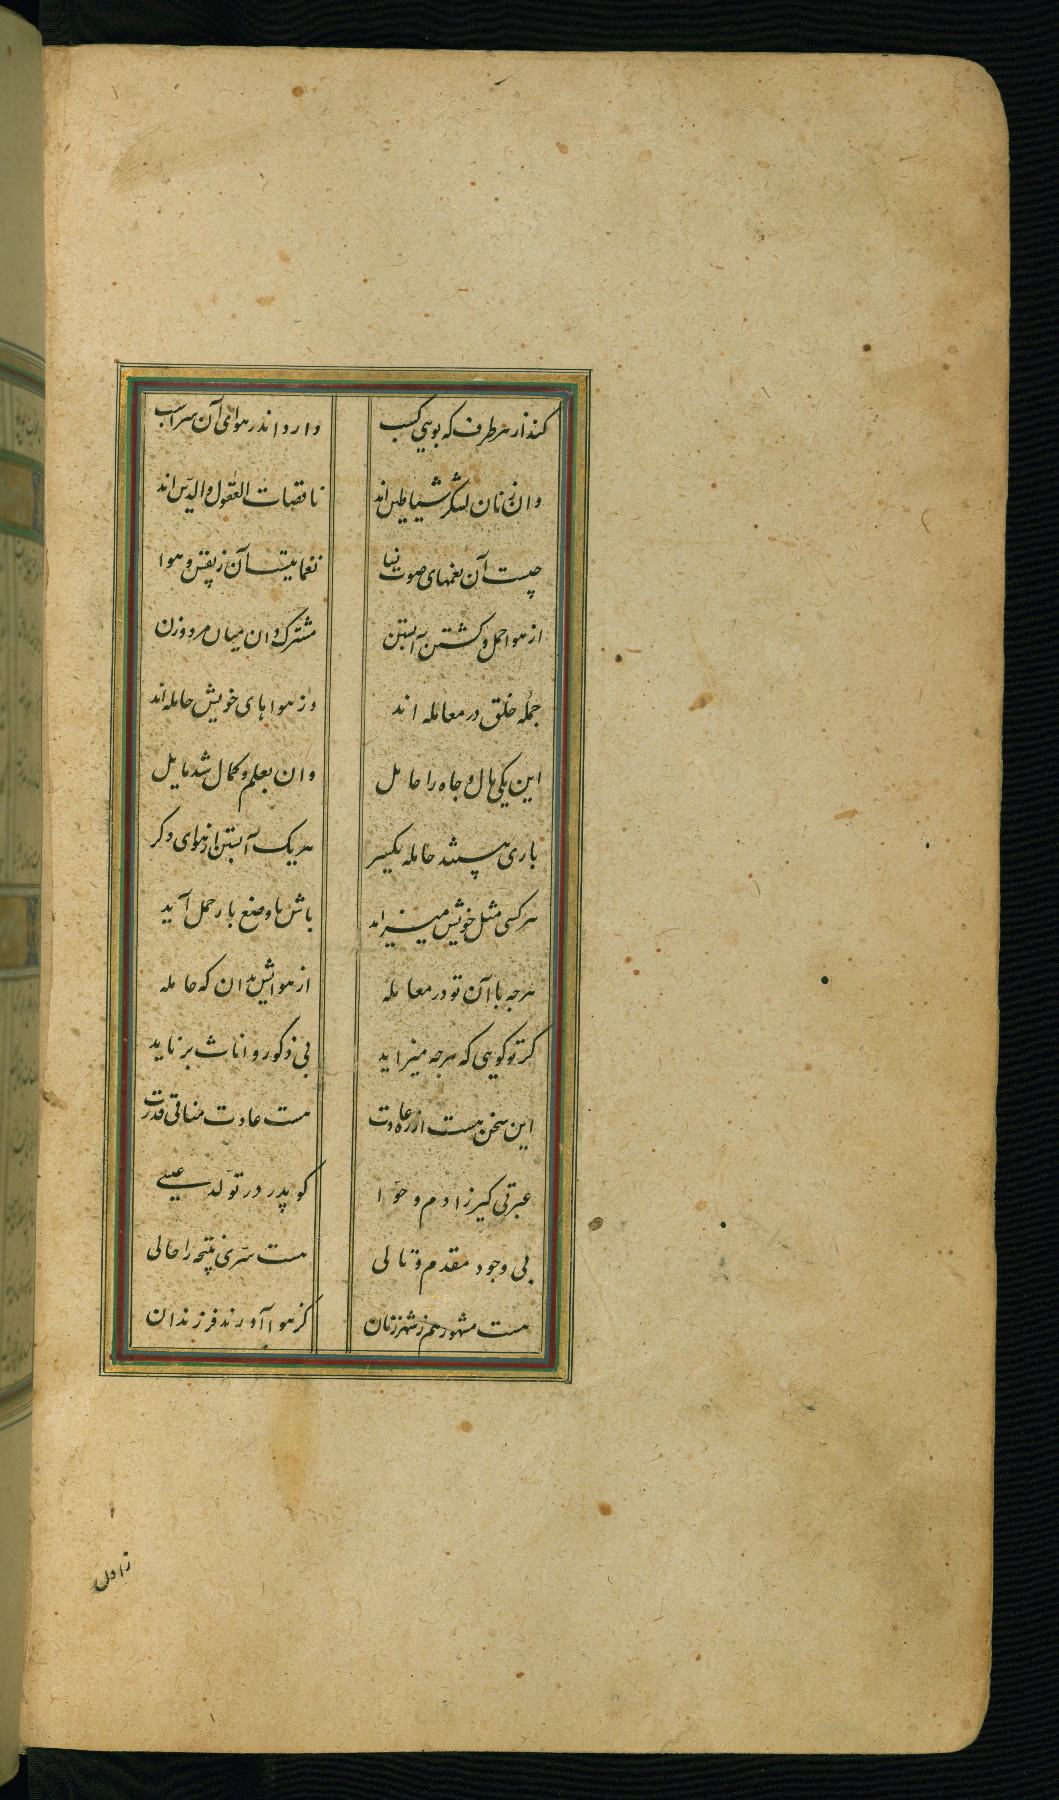 کند از هر طرف که بویی کسب وارد اندر هوای آن سراب
وان زنان لشکر شیاطین اند ناقصات العقول والدین اند
چیست آن نغمهای صوت نسا نغماتیست آن ز نقش و هوا
از هوا حمل و کشتن آبستن مشترک دان میان مرد و زن
جمله خلق در معامله اند وز هواهای خویش حامله اند
این یکی مال و جاه را حامل وان بعلم و کمال شد مایل
باری هستند حامله یکسر هر یک آبستن از هوای دکر
هر کسی مثل خویش میزاید باش تا وضع بار حمل آید
هرچه با آن تو در معامله از هوااش بدان که حامله
کر تو کویی که هرچه میزاید بی ذکور و اناث بر ناید
این سخن هست از ره عادت هست عادت منافی قدرت
عبرتی کیر ز آدم و حوا کو پدر در تولد عیسی
بی وجود مقدم و تالی هست سری نتیجه را حالی
هست مشهور هم ز شهر زنان کز هوا آورند فرزندان
زاول